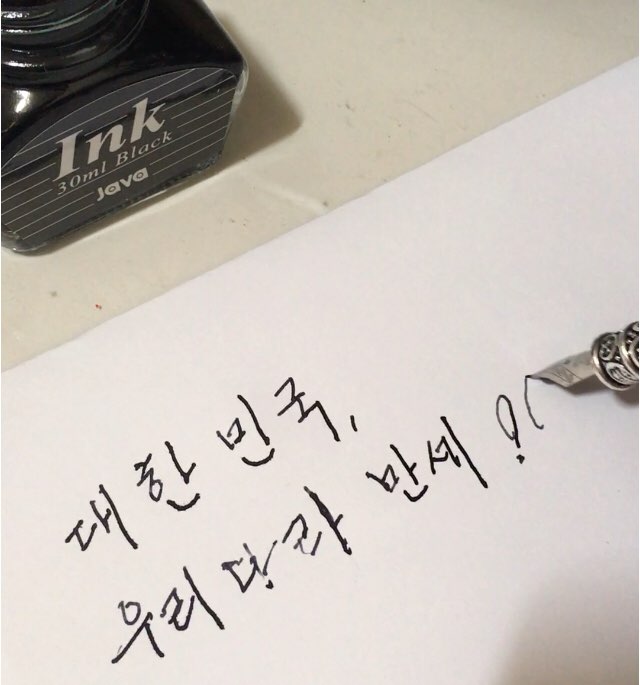 Ink
30ml Black
Java
대한민국,
우리나라 만세!